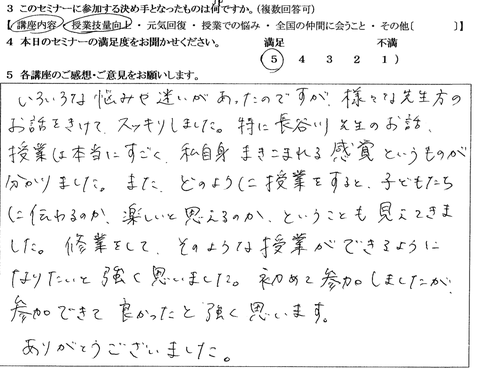 3 このセミナーに参加する決め手となったものは何ですか。(複数回答可)
[講座内容・授業技量向上・元気回復・授業での悩み・全国の仲間に会うこと・その他( )]
4 本日のセミナーの満足度をお聞かせください。 満足 不満
(5 4 3 2 1)
5 各講座のご感想・ご意見をお願いします。
いろいろな悩みや迷いがあったのですが、様々な先生方の
お話をきけて、スッキリしました。特に長谷川先生のお話、
授業は本当にすごく、私自身まきこまれる感覚というものが
分かりました。また、どのように授業をすると、子どもたち
に伝わるのか、楽しいと思えるのか、ということも見えてきま
した。修業をして、そのような授業ができるように
なりたいと強く思いました。初めて参加しましたが、
参加できて良かったと強く思います。
ありがとうございました。